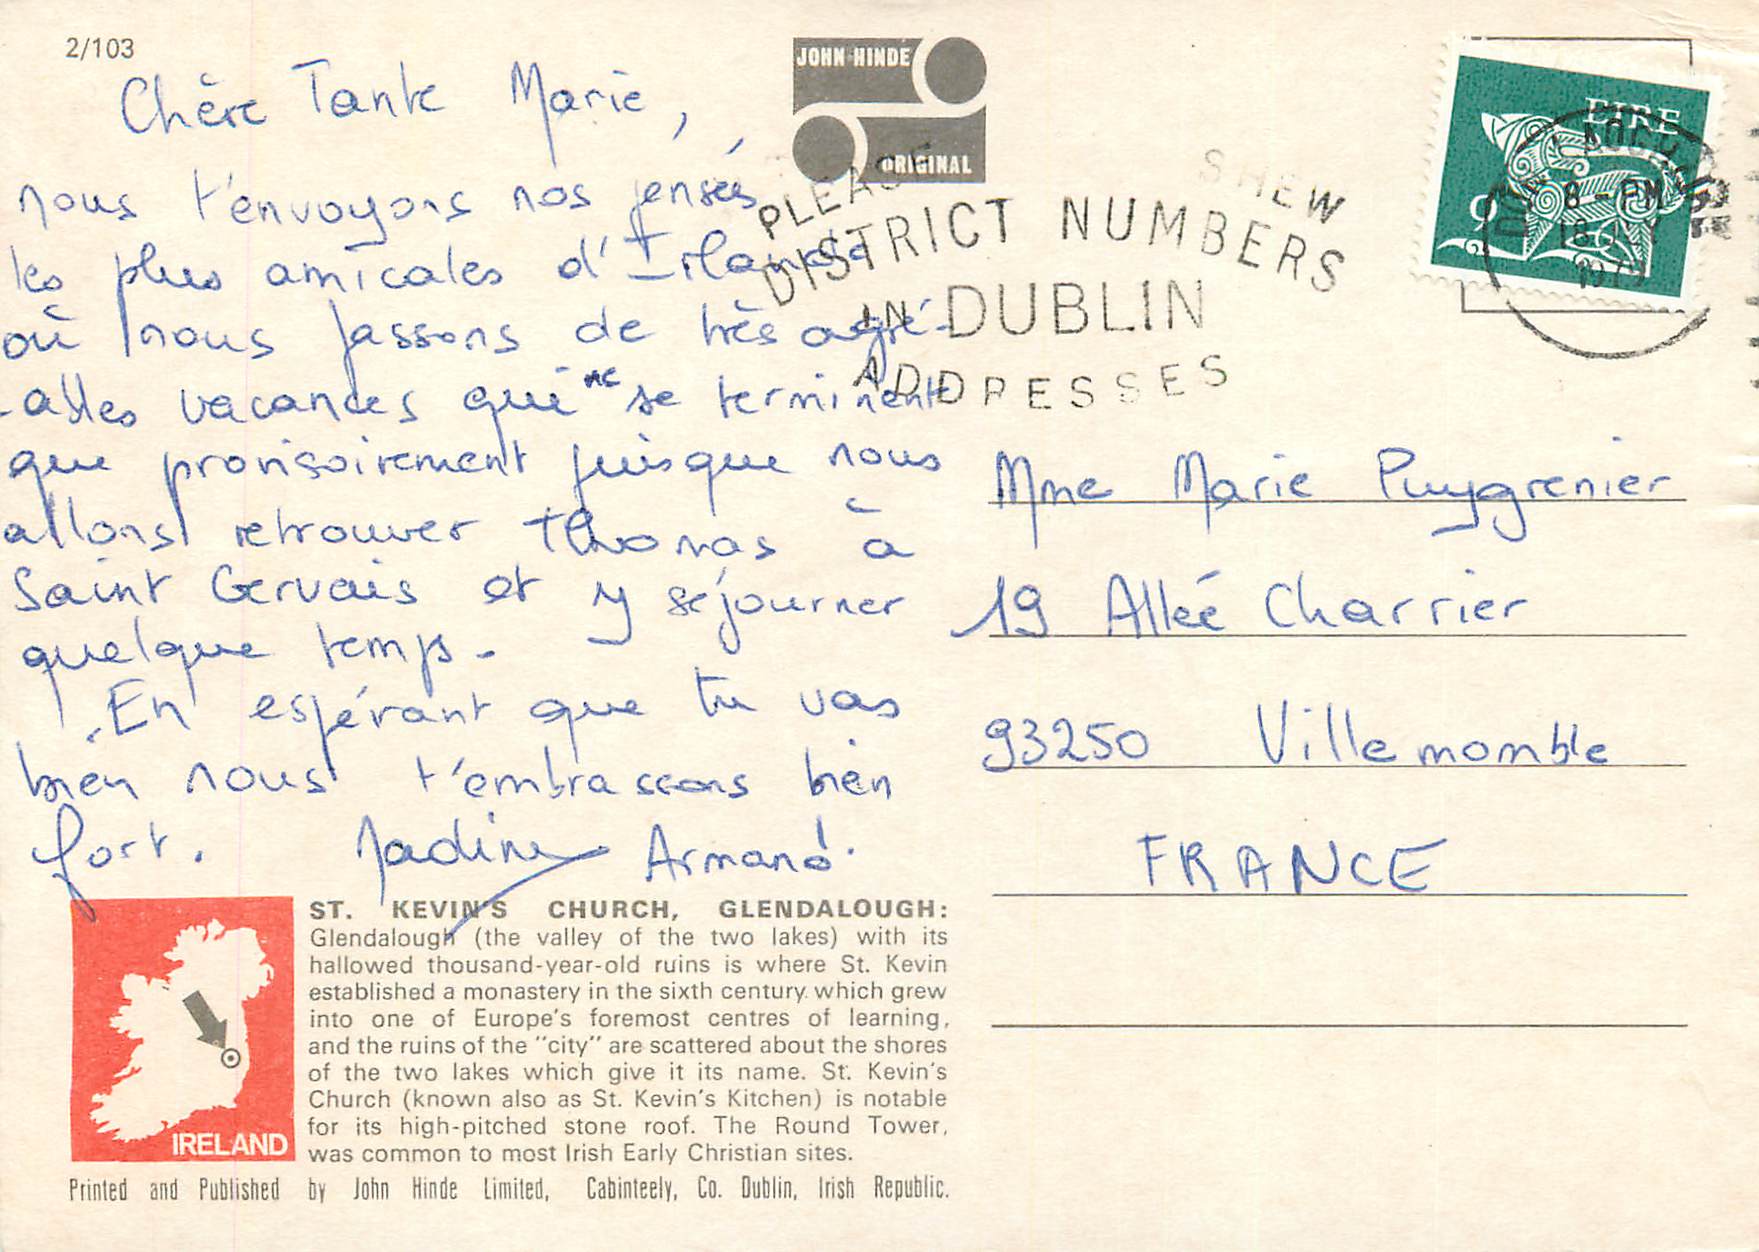 2/103
Chère Tante Marie,
nous t'envoyons nos pensées
les plus amicales d'Irlande
où nous passons de très agré-
-ables vacances qui ne se terminent
que provisoirement puisque nous
allons retrouver Thomas à
Saint Gervais et y séjourner
quelque temps.
En espérant que tu vas
bien nous t'embrassons bien
fort. Nadine Armand.
JOHN HINDE
ORIGINAL
PLEASE SHEW
DISTRICT NUMBERS
IN DUBLIN
ADDRESSES
EIRE
9
8-PM
Mme Marie Puygrenier
19 Allée Charrier
93250 Villemomble
FRANCE
IRELAND
ST. KEVIN'S CHURCH, GLENDALOUGH:
Glendalough (the valley of the two lakes) with its
hallowed thousand-year-old ruins is where St. Kevin
established a monastery in the sixth century which grew
into one of Europe's foremost centres of learning,
and the ruins of the "city" are scattered about the shores
of the two lakes which give it its name. St. Kevin's
Church (known also as St. Kevin's Kitchen) is notable
for its high-pitched stone roof. The Round Tower,
was common to most Irish Early Christian sites.
Printed and Published by John Hinde Limited, Cabinteely, Co. Dublin, Irish Republic.